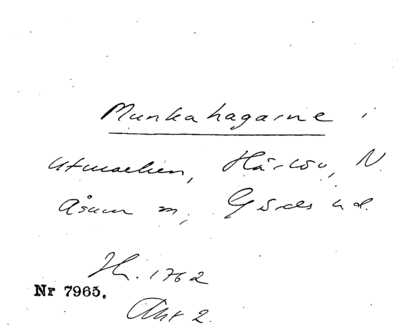 Munkahagarne i
utmarken, Härlöv, N.
Åsum sn, Gärds hd.
Hl. 1762
Nr 7965.
Akt 2.